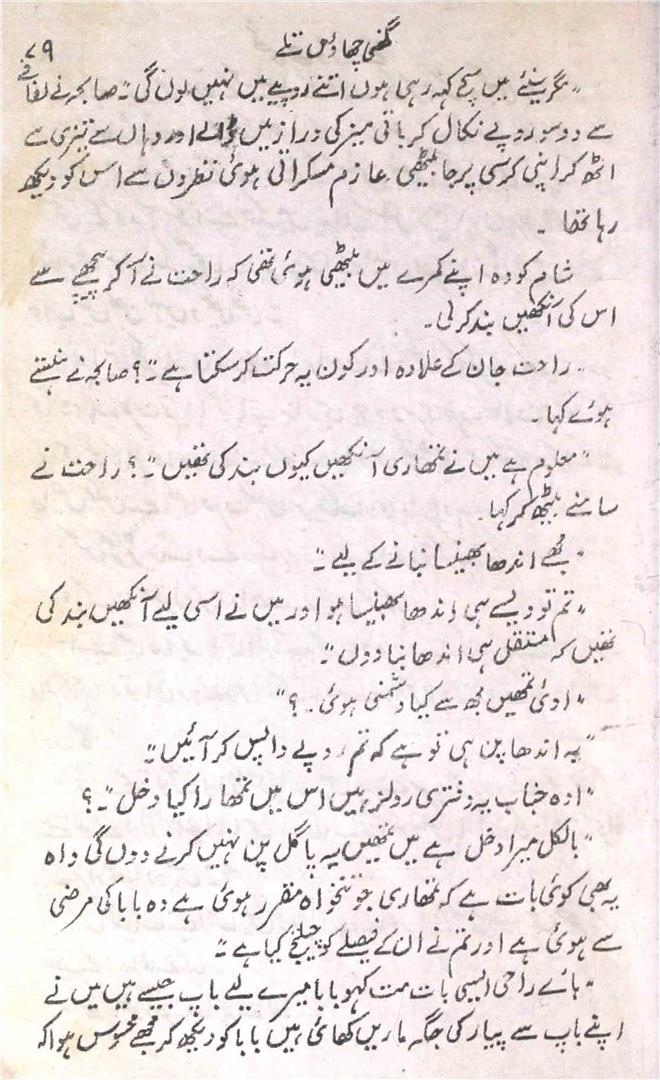 گھنی چھاؤں تلے
۷۹
"مگر سنئے میں سچ کہہ رہی ہوں اتنے روپیے میں نہیں لوں گی"۔ صابحہ نے لفافے
سے دو سو روپے نکال کر باقی میز کی دراز میں ڈالے اور وہاں سے تیزی سے
اٹھ کر اپنی کرسی پر جا بیٹھی۔ عازم مسکراتی ہوئی نظروں سے اس کو دیکھ
رہا تھا ۔
شام کو وہ اپنے کمرے میں بیٹھی ہوئی تھی کہ راحت نے آ کر پیچھے سے
اس کی آنکھیں بند کر لی۔
"راحت جان کے علاوہ اور کون یہ حرکت کر سکتا ہے"؟ صابحہ نے ہنستے
ہوئے کہا۔
"معلوم ہے میں نے تمھاری آنکھیں کیوں بند کی تھیں"؟ راحت نے
سامنے بیٹھ کر کہا۔
"مجھے اندھا بھینسا بنانے کے لیے"۔
"تم تو ویسے ہی اندھا بھینسا ہو اور میں نے اسی لیے آنکھیں بند کی
تھیں کہ مستقل ہی اندھا بنا دوں"۔
"اوئی تمھیں مجھ سے کیا دشمنی ہوئی۔؟"
"یہ اندھا پن ہی تو ہے کہ تم روپے واپس کر آئیں"۔
"اوہ جناب یہ دفتری رولز ہیں اس میں تمھارا کیا دخل"۔؟
"بالکل میرا دخل ہے میں تمھیں یہ پاگل پن نہیں کرنے دوں گی واہ
یہ بھی کوئی بات ہے کہ تمھاری جو تنخواہ مقرر ہوئی ہے وہ بابا کی مرضی
سے ہوئی ہے اور تم نے ان کے فیصلے کو چیلنج کیا ہے"۔
"ہائے راحی ایسی بات مت کہو بابا میرے لیے باپ جیسے ہیں میں نے
اپنے باپ سے پیار کی جگہ ماریں کھائی ہیں بابا کو دیکھ کر مجھے محسوس ہوا کہ